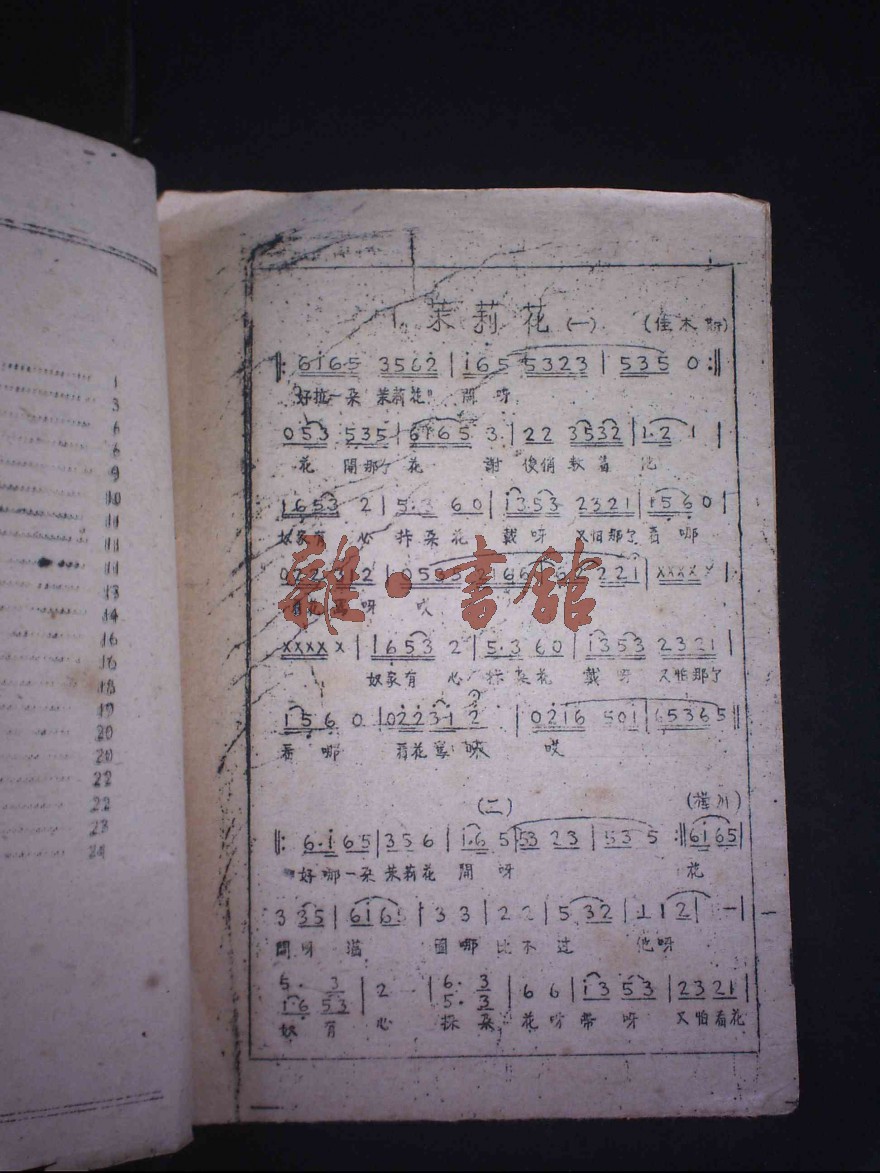 1
3
6
6
9
10
11
11
11
13
14
16
16
18
19
20
20
22
22
23
24
茉莉花(一) (佳木斯)
‖: 6i65 3562 | i65 5323 | 535 0 :‖
好拉一朵 茉莉花 開呀
053 535 | 6i65 3· | 22 3532 | 1·2 1 |
花 開那了花 謝 俊俏 軟 他
1653 2 | 5·3 60 | i353 2321 | 156 0 |
奴家有 心 採朵花 戴呀 又怕那了看哪
呀 哎
雜·書舘
XXXX X | 1653 2 | 5·3 60 | i353 2321 |
奴家有 心 採朵花 戴呀 又怕那了
156 0 | 0223·1 2 | 02i6 50i | 65365 ‖
看哪 看花罵咪 哎
(二) (樺川)
‖: 6·i 65 | 35 6 | i·6 5 | 53 23 | 53 5 :‖ 6i65 |
好哪一朵 茉莉花 開呀 花
3 35 | 6i65 | 3 3 | 22 | 5 32 | 11 | 2 | — |
開呀 滿 園哪 比不过 他呀
5· 3 6· 3
i·6 53 | 2 — | 5· 3 | 66 | i3 53 | 2321 |
奴有 心 採朵 花呀 帶呀 又怕看花